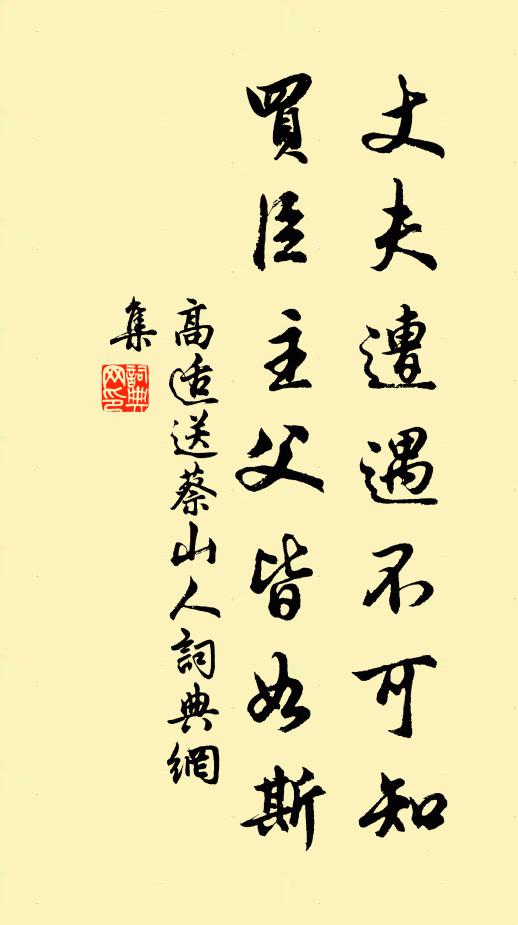 丈夫遭遇不可知
買臣主父皆如斯
高适送蔡山人詞典網
集
詞典
网印